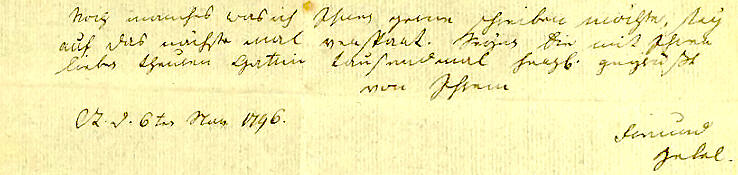 Noch manches was ich Ihnen gerne schreiben möchte, sey
auf das nächste mal verspart. Seyen Sie mit Ihrer
lieben theuren Gattin tausendmal herzl. gegrüßt
von Ihrem
d. 6ten Nov 1796.
Freund
Hebel.